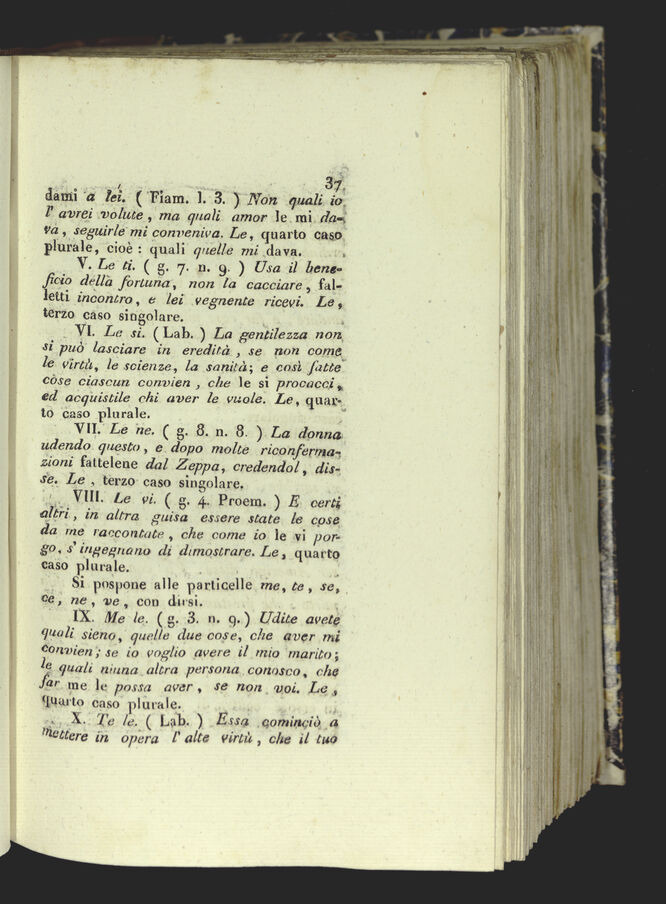 37
dami a lei. ( Fiam. l. 3. ) Non quali io
l' avrei volute, ma quali amor le mi da-
va, seguirle mi conveniva. Le, quarto caso
plurale, cioè : quali quelle mi dava.
V. Le ti. ( g. 7. n. 9. ) Usa il bene-
ficio della fortuna, non la cacciare, fal-
letti incontro, e lei vegnente ricevi. Le,
terzo caso singolare.
VI. Le si. ( Lab. ) La gentilezza non
si può lasciare in eredità, se non come
le virtù, le scienze, la sanità; e così fatte
cose ciascun convien, che le si procacci,
ed acquistile chi aver le vuole. Le, quar-
to caso plurale.
VII. Le ne. ( g. 8. n. 8. ) La donna
udendo questo, e dopo molte riconferma-
zioni fattelene dal Zeppa, credendol, dis-
se. Le, terzo caso singolare.
VIII. Le vi. ( g. 4. Proem. ) E certi
altri, in altra guisa essere state le cose
da me raccontate, che come io le vi por-
go, s' ingegnano di dimostrare. Le, quarto
caso plurale.
Si pospone alle particelle me, te, se,
ce, ne, ve, con dirsi.
IX. Me le. ( g. 3. n. 9. ) Udite avete
quali sieno, quelle due cose, che aver mi
convien; se io voglio avere il mio marito;
le quali niuna altra persona conosco, che
far me le possa aver, se non voi. Le,
quarto caso plurale.
X. Te le. ( Lab. ) Essa cominciò a
mettere in opera l' alte virtù, che il tuo